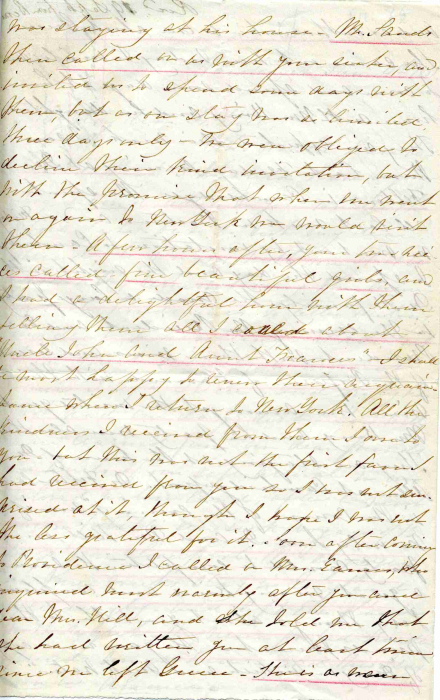 was staying at his house - Mr. Sands
then called on us with your sister, and
invited us to spend some days with
them, but as our stay was as limited
three days only - we were obliged to
decline their kind invitation, but
with the promise that when we went
on again to New York we would visit
them - A few hours after, your two nie
ces called, fine beautiful girls, and
I had a delightful hour with them
telling them all I could about
"Uncle John and Aunt Frances" - I shall
be most happy to renew their acquain
tance when I return to New York. All the
kindness I received from them I owe to
you but this was not the first favor I
had received from you so I was not sur
prised at it, though I hope I was not
the less grateful for it. Soon after coming
to Providence I called on Mrs. Eames, who
inquired most warmly after you and
dear Mrs. Hill, and she told me that
she had written you at least
since we left Greece - She is as